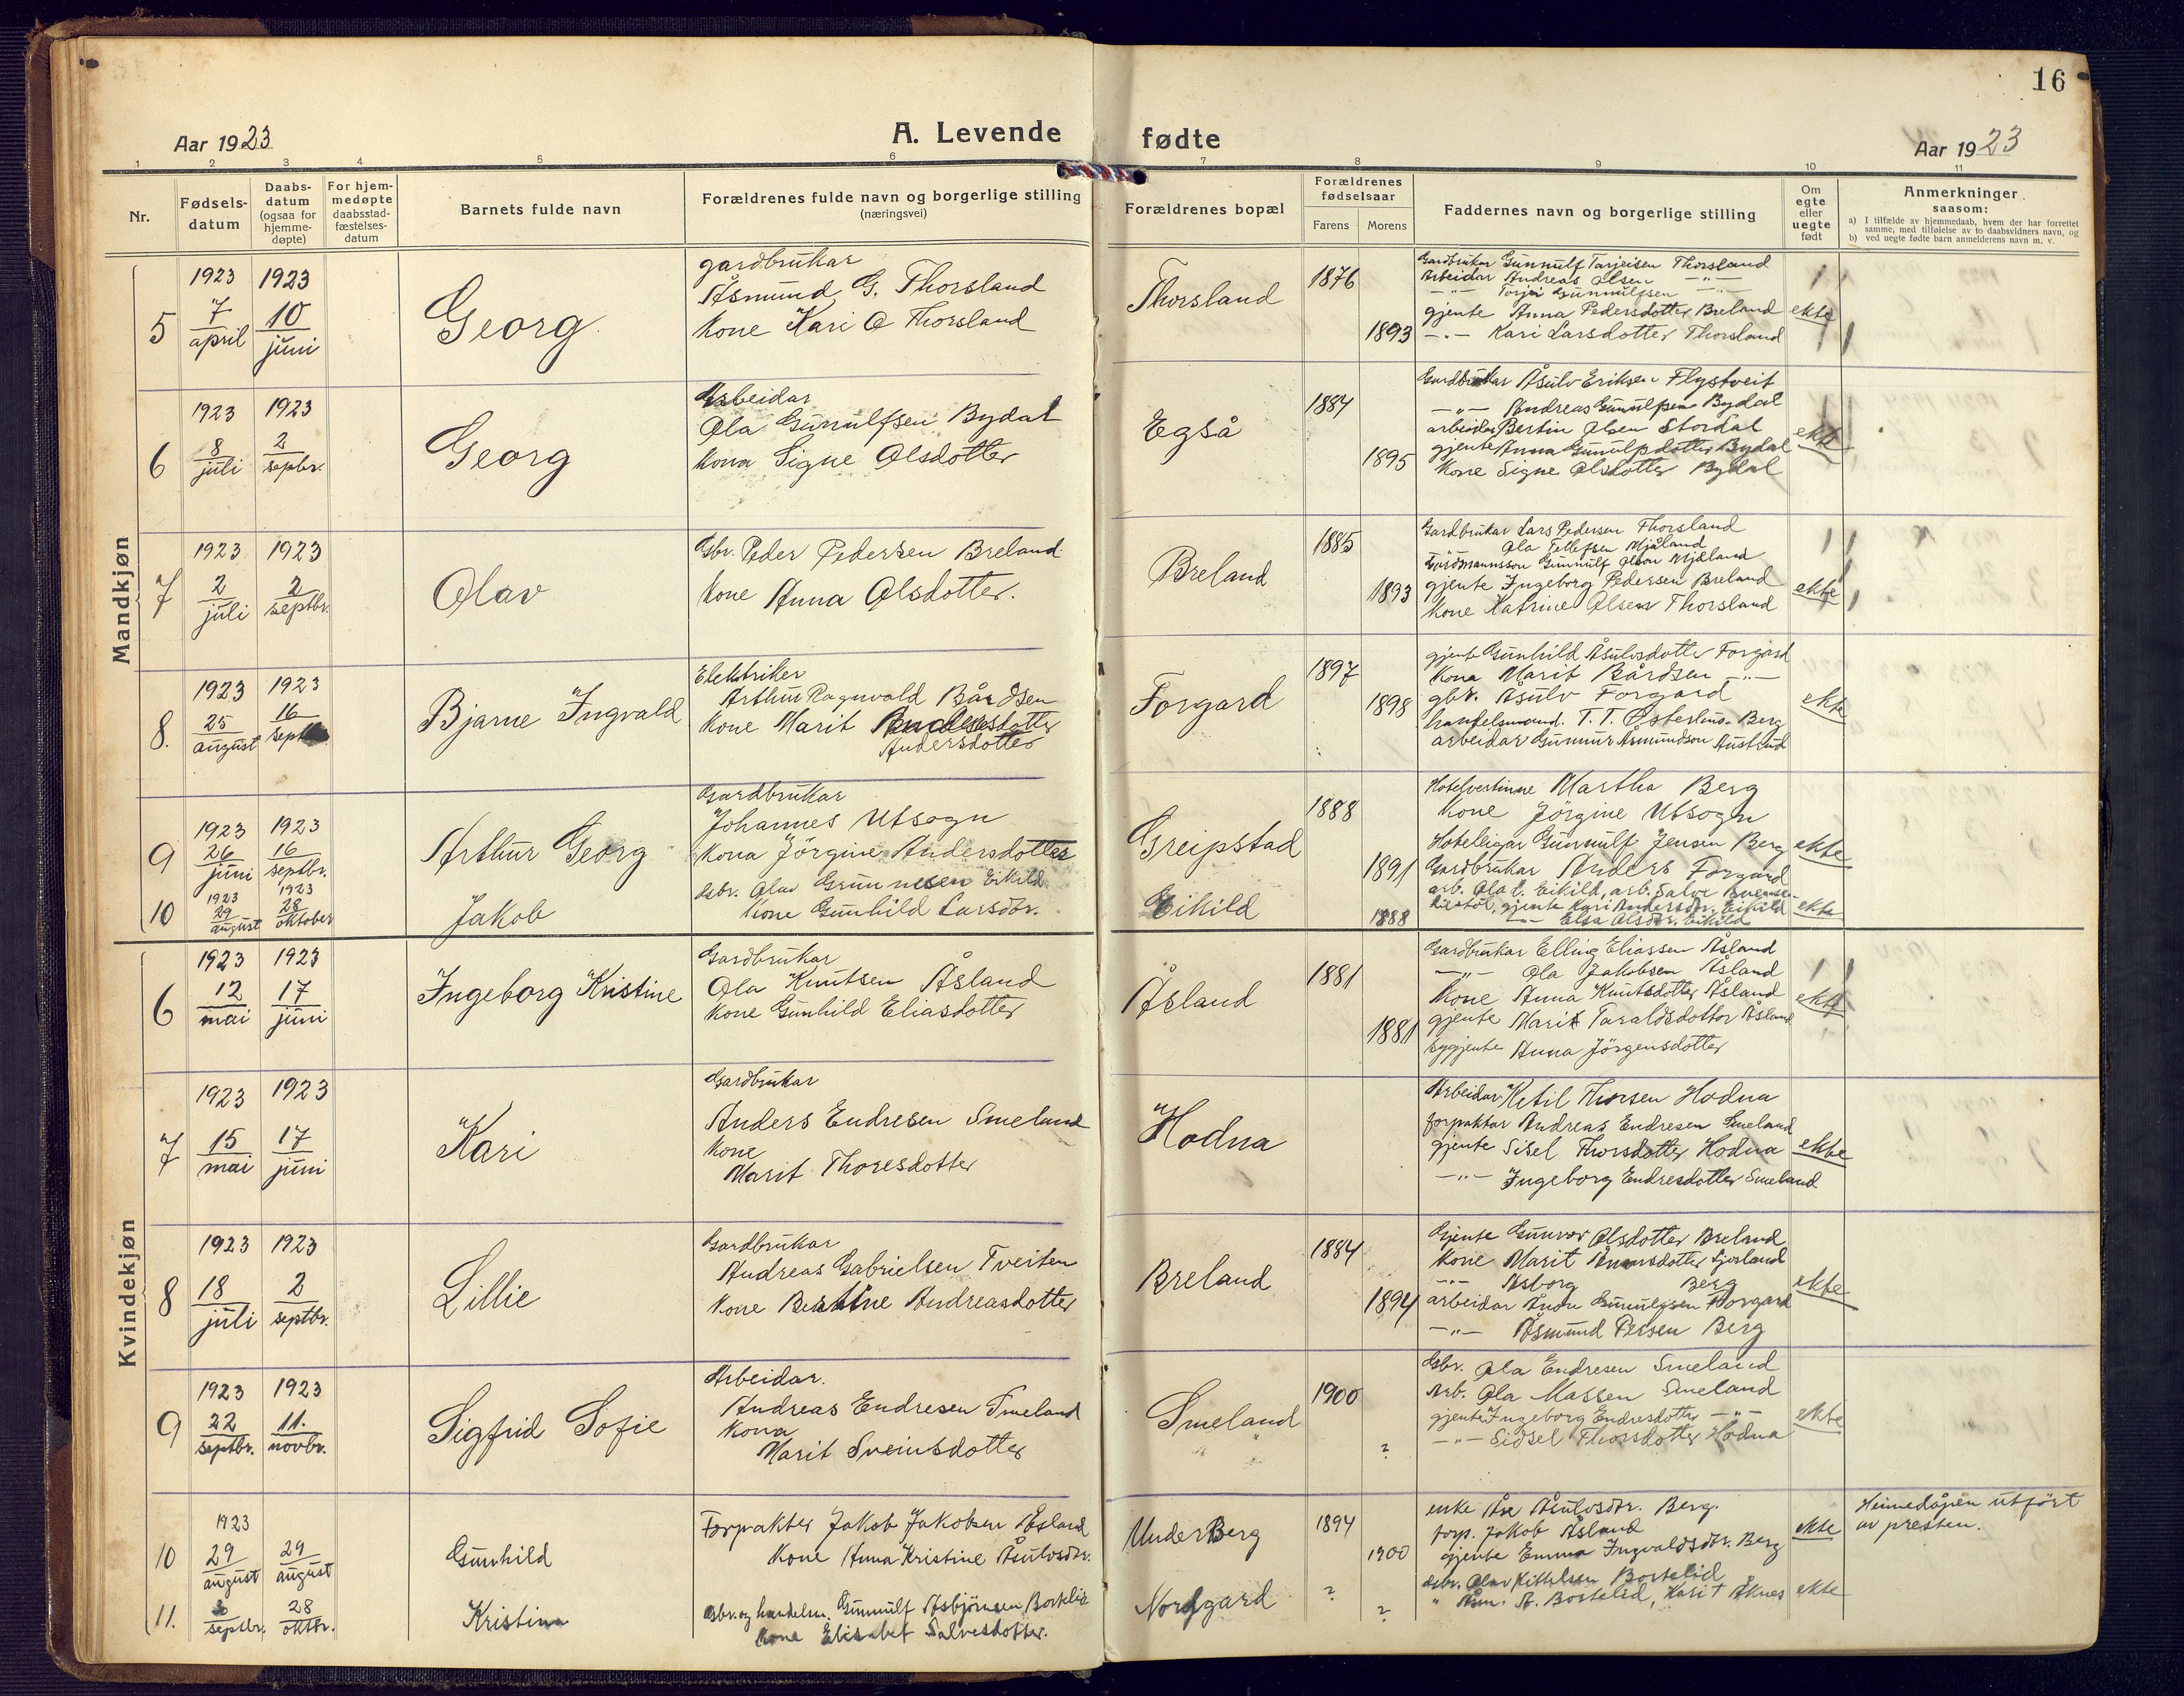 16
Aar 1923
A. Levende fødte
Aar 1923
1 2 3 4 5 6 7 8 9 10 11
Nr.
Fødsels-
datum
Daabs-
datum
(ogsaa for
hjemme-
døpte)
For hjem-
medøpte
daabsstad-
fæstelses-
datum
Barnets fulde navn
Forældrenes fulde navn og borgerlige stilling
(næringsvei)
Forældrenes bopæl
Forældrenes
fødselsaar
Farens Morens
Faddernes navn og borgerlige stilling
Om
egte
eller
uegte
født
Anmerkninger
saasom:
a) I tilfælde av hjemmedaab, hvem der har forrettet
samme, med tilføielse av to daabsvidners navn, og
b) ved uegte fødte barn anmelderens navn m. v.
Mandkjøn
5
1923 7 april
1923 10 juni
Georg
gardbrukar
Åsmund G. Thorsland
Kone Kari O Thorsland
Thorsland
1876
1893
Gardbrukar Gunnulf Tarjeisen Thorsland
Arbeidar Andreas Olsen —"—
—"— Torje Gunnulfsen —"—
gjente Anna Pedersdotter Breland
—"— Kari Larsdotter Thorsland
ekte
6
1923 8 juli
1923 2 septbr.
Georg
Arbeidar
Ola Gunnulfsen Bydal
Kona Signe Olsdotter
Egså
1884
1895
Gardbrukar Åsulv Eriksen Flystveit
—"— Andreas Gunnulfsen Bydal
arbeidar Bertin Olsen Stordal
gjente Anna Gunnulfsdotter Bydal
Kone Signe Olsdotter Bydal
ekte
7
1923 2 juli
1923 2 septbr.
Olav
Gbr. Peder Pedersen Breland
Kone Anna Olsdotter.
Breland
1885
1893
Gardbrukar Lars Pedersen Thorsland
Ola Tellefsen Mjåland
Gardmannsson Gunnulf Olson Mjåland
gjente Ingeborg Pedersen Breland
Kone Katrine Olsen Thorsland
ekte
8.
1923 25 august
1923 16 sept
Bjarne Ingvald
Elektriker
Arthur Ragnvald Bårdsen
Kone Marit
Andersdotter
Forgard
1897
1898
gjente Gunhild Åsulvsdotter Forgard
Kona Marit Bårdsen —"—
gbr. Åsulv Forgard
handelsmand. T. T. Østerhus Berg
arbeidar Gunnur Åsmundson Austrud
ekte
9
1923 26 juni
1923 16 septbr.
Arthur Georg
Gardbrukar
Johannes Utsogn
Kona Jörgine Andersdotter
Greipstad
1888
1891
Hotelvertinne Martha Berg
Kone Jörgine Utsogn
Hoteleigar Gunnulf Jensen Berg
Gardbrukar Anders Forgard
ekte
10
1923 29 august
1923 28 oktober
Jakob
Gbr. Olav Gunnesen Eikild
Kone Gunhild Larsdtr.
Eikild
1888
arb. Olav L. Eikild, arb. Salve
gjente Kari Andersdtr. Eikild
—"— Elsa Olsdtr. Eikild
ekte
Kvindekjøn
6
1923 12 mai
1923 17 juni
Ingeborg Kristine
Gardbrukar
Ola Knutsen Åsland
Kone Gunhild Eliasdotter
Åsland
1881
1881
Gardbrukar Elling Eliassen Åsland
—"— Ola Jakobsen Åsland
Kone Anna Knutsdotter Åsland
gjente Marit Taraldsdotter Åsland
sygjente Anna Jörgensdotter
ekte
7
1923 15 mai
1923 17 juni
Kari
Gardbrukar
Anders Endresen Smeland
Kone
Marit Thoresdotter
Hodna
Arbeidar Ketil Thorsen Hodna
forpaktar Andreas Endresen Smeland
gjente Sisel Thorsdotter Hodna
—"— Ingeborg Endresdotter Smeland
ekte
8
1923 18 juli
1923 2 septbr.
Lillie
Gardbrukar
Andreas Gabrielsen Tveiten
Kone Bertine Andreasdotter
Breland
1884
1894
Gjente Gunvor Olsdotter Breland
Kone Marit
—"— Åsborg Berg
arbeidar Gunnulfsen Forgard
—"— Åsmund Persen Berg
ekte
9
1923 22 septbr.
1923 11. novbr.
Sigfrid Sofie
Arbeidar.
Andreas Endresen Smeland
Kona
Marit Sveinsdotter
Smeland
1900
?
Gbr. Ola Endresen Smeland
Arb. Ola Massen Smeland
gjente Ingeborg Endresdotter —"—
—"— Sidsel Thorsdotter Hodna
ekte
10
1923 29 august
29 august
Gunhild
Forpakter Jakob Jakobsen Åsland
Kone Anna Kristine Åsulvsdtr.
Under Berg
1894
1900
enke Åse Åsulvsdtr. Berg.
forp. Jakob Åsland
gjente Emma Ingvaldsdtr. Berg
ekte
Heimedåpen utfört
av presten.
11.
septbr.
28 oktbr.
Kristine
Gbr. og handelsm. Gunnulf Åsbjörnsen Bortelid
Kone Elisabet Salvesdotter.
Nordgard
?
?
Gbr. Olav Kittelsen Bortelid
" Åsm. A. Bortelid, Marit Åknes
ekte